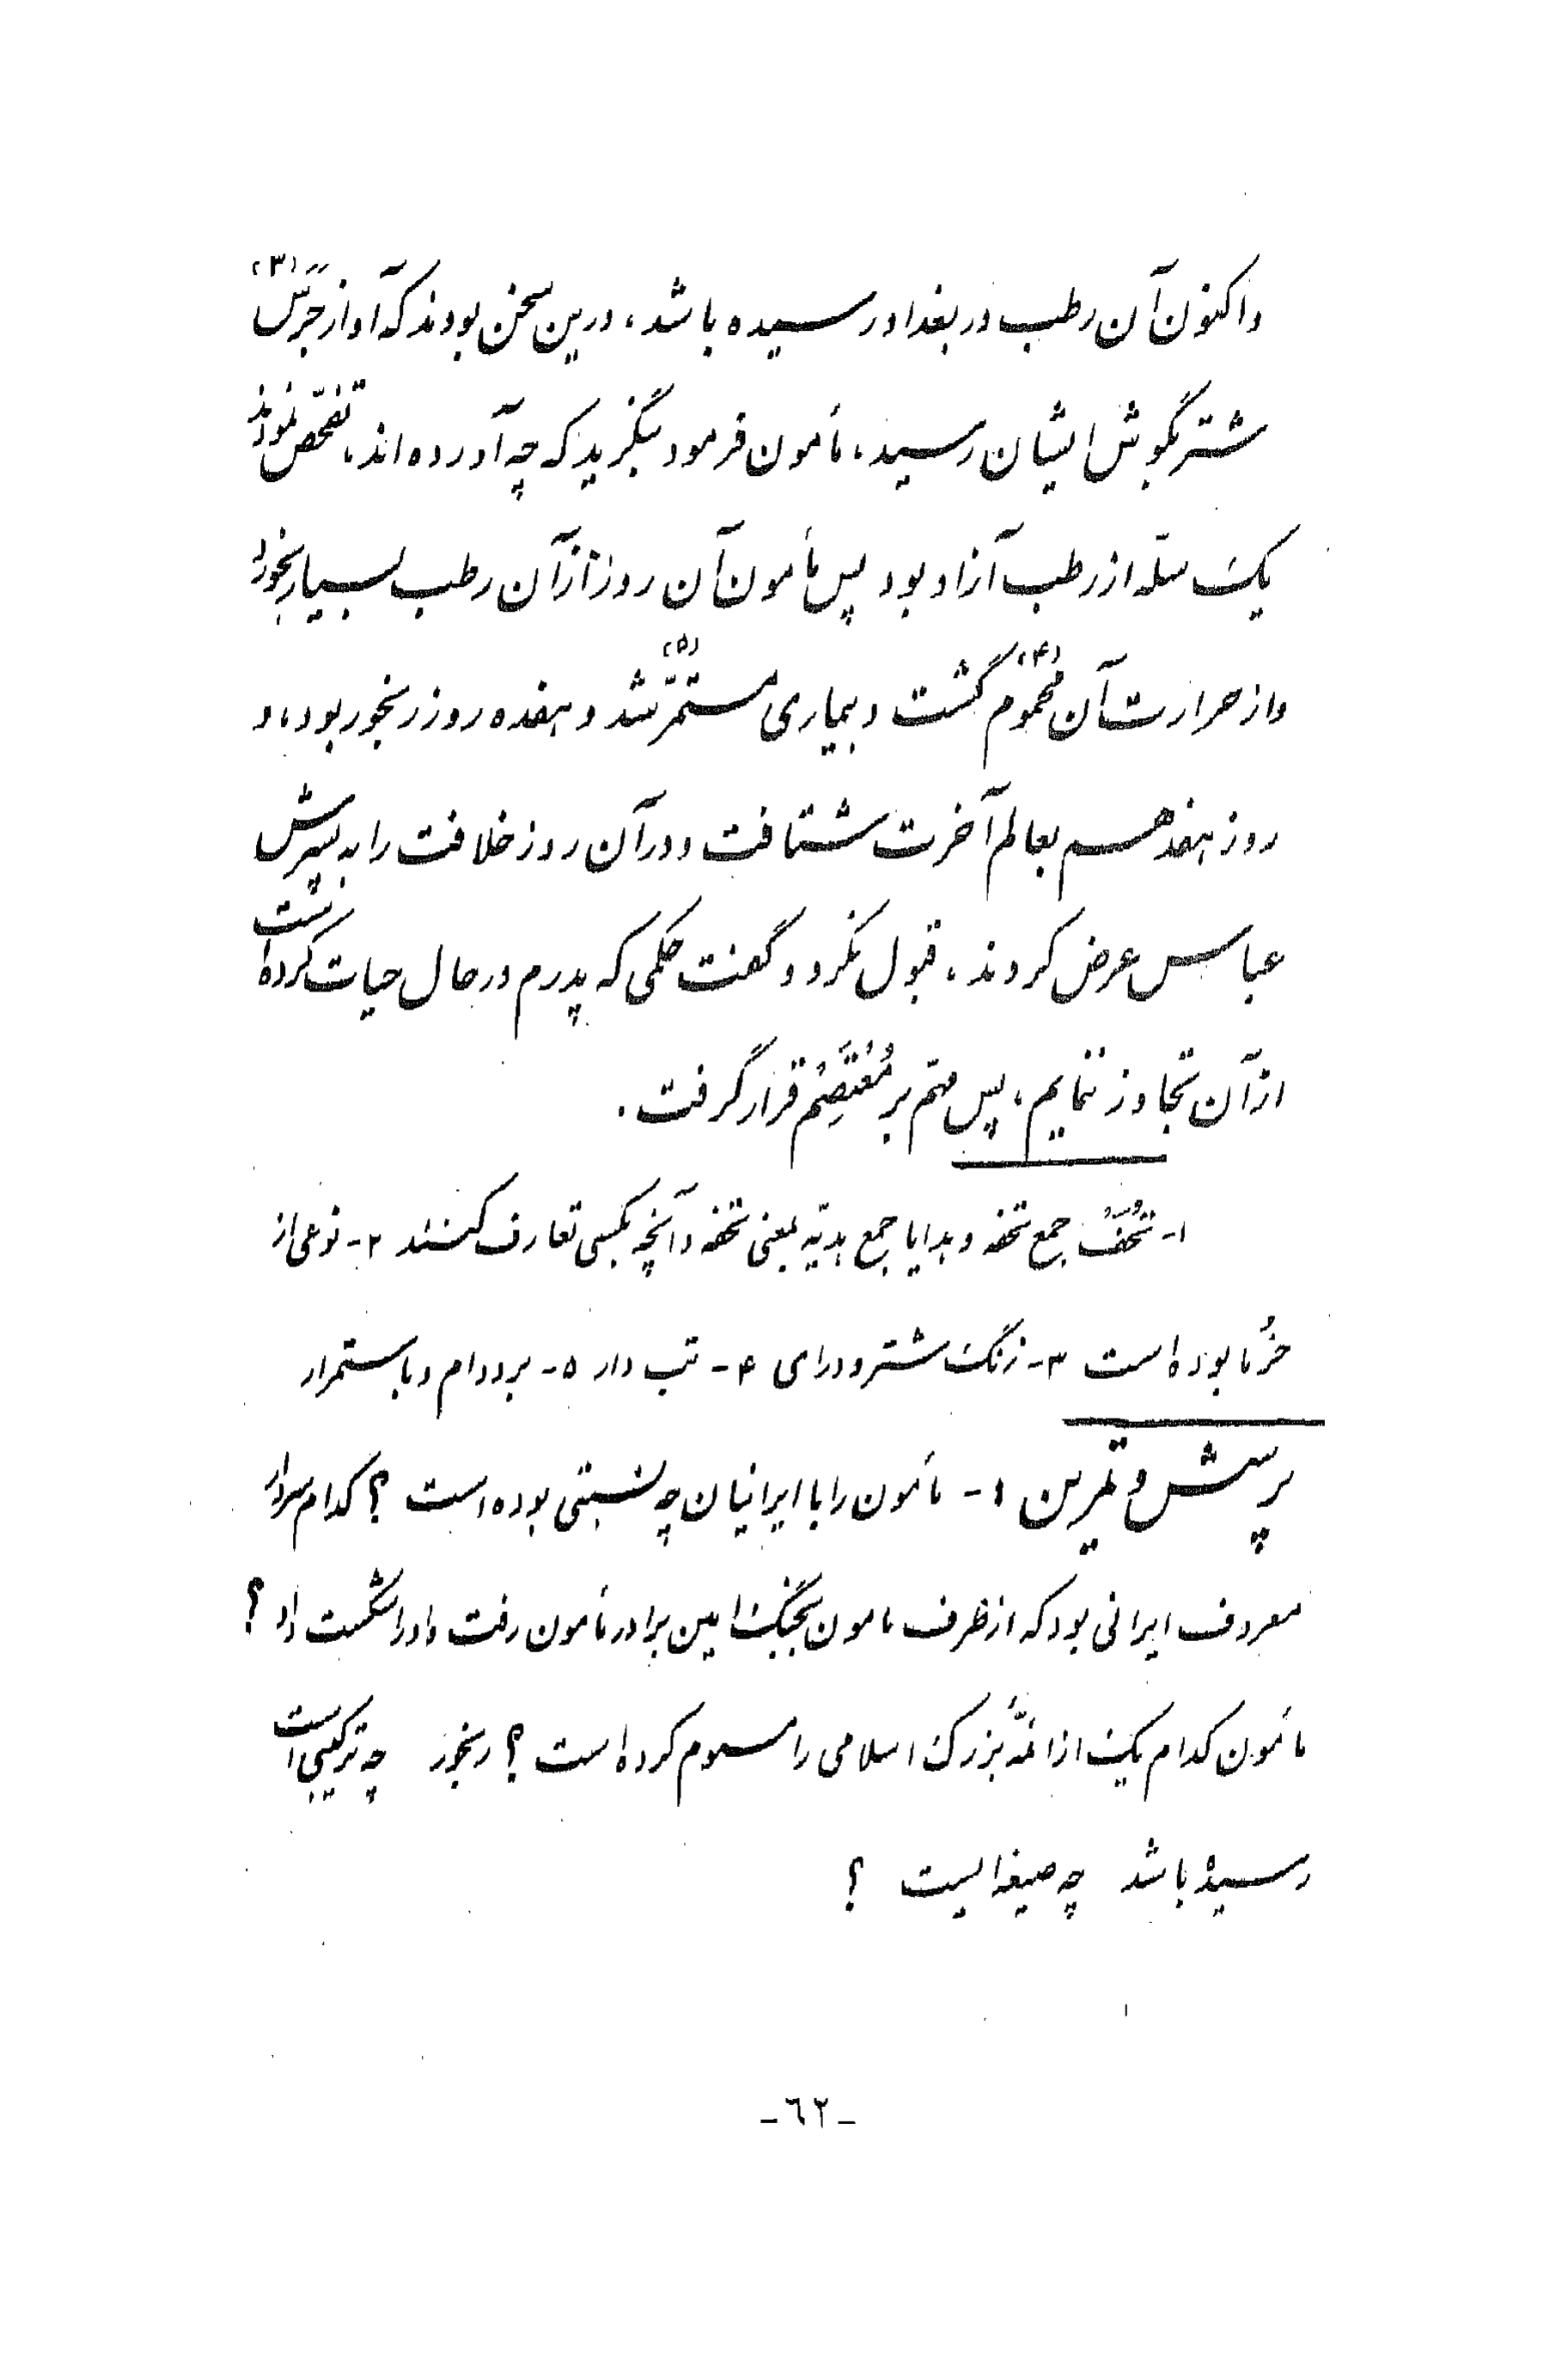 واکنون آن رطب در بغداد رسیده باشد، درین سخن بودند که آواز جَرَس (۳)
شتر بگوش ایشان رسید، مأمون فرمود بنگرید که چه آورده‌اند، تفحّص نمودند
یک سلّه از رطب آزاد بود پس مأمون آن روز از آن رطب بسیار بخورد
و از حرارت آن محموم (۴) گشت و بیماری مستمرّ (۵) شد و هفده روز رنجور بود، و
روز هفدهم بعالم آخرت شتافت و در آن روز خلافت را به پسرش
عباس عرض کردند، قبول نکرد و گفت حکمی که پدرم در حال حیات کرده است
از آن تجاوز ننمایم، پس مهّم بر مُعْتَصِم قرار گرفت.
۱- تُحَفْ جمع تحفه و هدایا جمع هدیّه بمعنی تحفه و آنچه بکسی تعارف کنند ۲- نوعی از
خُرما بوده است ۳- زنگ شتر و درای ۴- تب دار ۵- بر دوام و با ستمرار
پرسش و تمرین ۱- مأمون را با ایرانیان چه نسبتی بوده است ؟ کدام سردار
معروف ایرانی بود که از طرف مامون بجنگ امین برادر مأمون رفت و او را شکست داد ؟
مأمون کدام یک از ائمّهٔ بزرگ اسلامی را مسموم کرده است ؟ رنجور چه ترکیبی است
رسیده باشد چه صیغه ایست ؟
-٦٢-